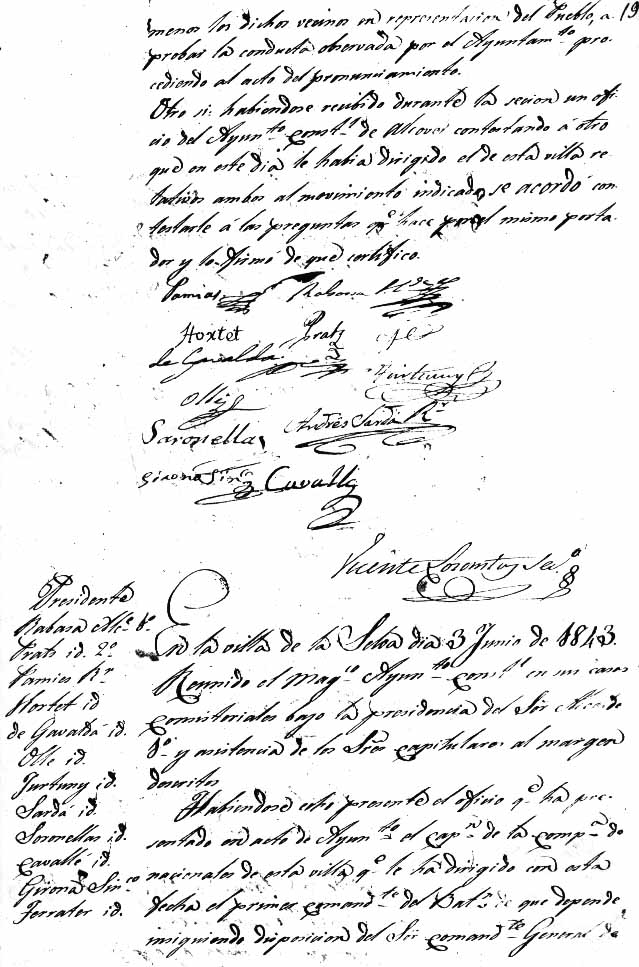 menos los dichos vecinos en representacion del Pueblo, a- 19
probar la conducta observada por el Ayuntam.to pro-
cediendo al acto del pronunciamiento.
Otro si: habiendose recibido durante la secion un ofi-
cio del Ayun.to const.l de Alcover contestando á otro
que en este dia le habia dirigido el de esta villa re-
lativos ambos al movimiento indicado, se acordó con-
testarle á las preguntas q.e hace por el mismo porta-
dor y lo firmó de que certifico.
Pamies Rabasa
Hortet Pratz
de Gavalda
Fortuny
Olle
Andrés Sardá R.r
Saronellas
Girona Sin.co Cavalle
Vicente Sec.o
Presidente
Rabasa Alc.e 1.o
Prats id. 2.o
Pamies R.r
Hortet id
de Gavaldá id.
Olle id.
Furtuny id.
Sardá id.
Soronellas id.
Cavallé id.
Girona Sin.co
Ferrater id.
En la villa de la Selva dia 3 Junio de 1843.
Reunido el Mag.co Ayun.to const.l en sus casas
consistoriales bajo la presidencia del Sor Alcalde
1.o y asistencia de los Sres capitulares al margen
descritos
Habiendose echo presente el oficio q.e ha pre-
sentado en acto de Ayun.to el cap.n de la comp.a de
nacionales de esta villa q.e le ha dirigido con esta
fecha el primer comand.te del Bat.n de que depende
insiguiendo disposicion del Sor comand.te General de